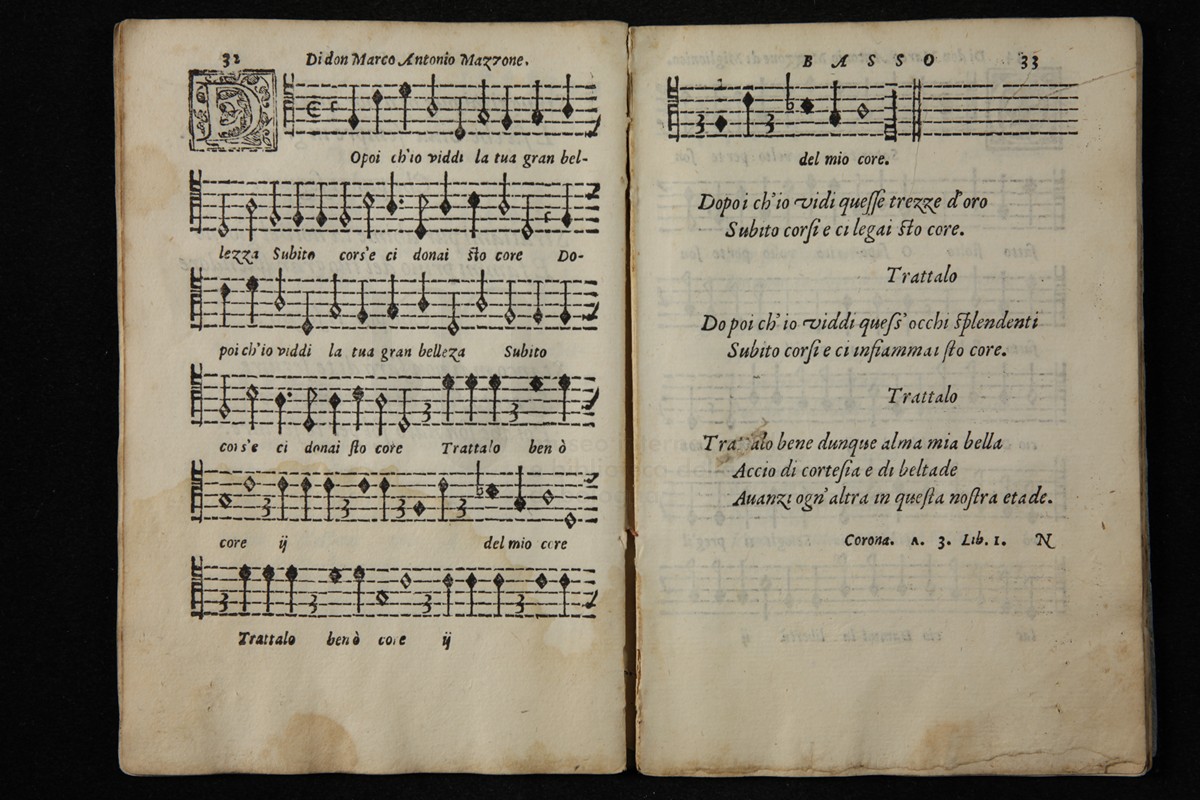 32
Di don Marco Antonio Mazzone.
DOpoi ch'io viddi la tua gran bel-
lezza Subito cors'e ci donai sto core Do-
poi ch'io viddi la tua gran belleza Subito
cors'e ci donai sto core Trattalo ben ò
core ij del mio core
Trattalo ben ò core ij
BASSO 33
del mio core.
Dopo i ch'io vidi quesse trezze d'oro
Subito corsi e ci legai sto core.
Trattalo
Do poi ch'io viddi quess'occhi splendenti
Subito corsi e ci infiammai sto core.
Trattalo
Trattalo bene dunque alma mia bella
Accio di cortesia e di beltade
Auanzi ogn'altra in questa nostra etade.
Corona. A. 3. Lib. 1. N